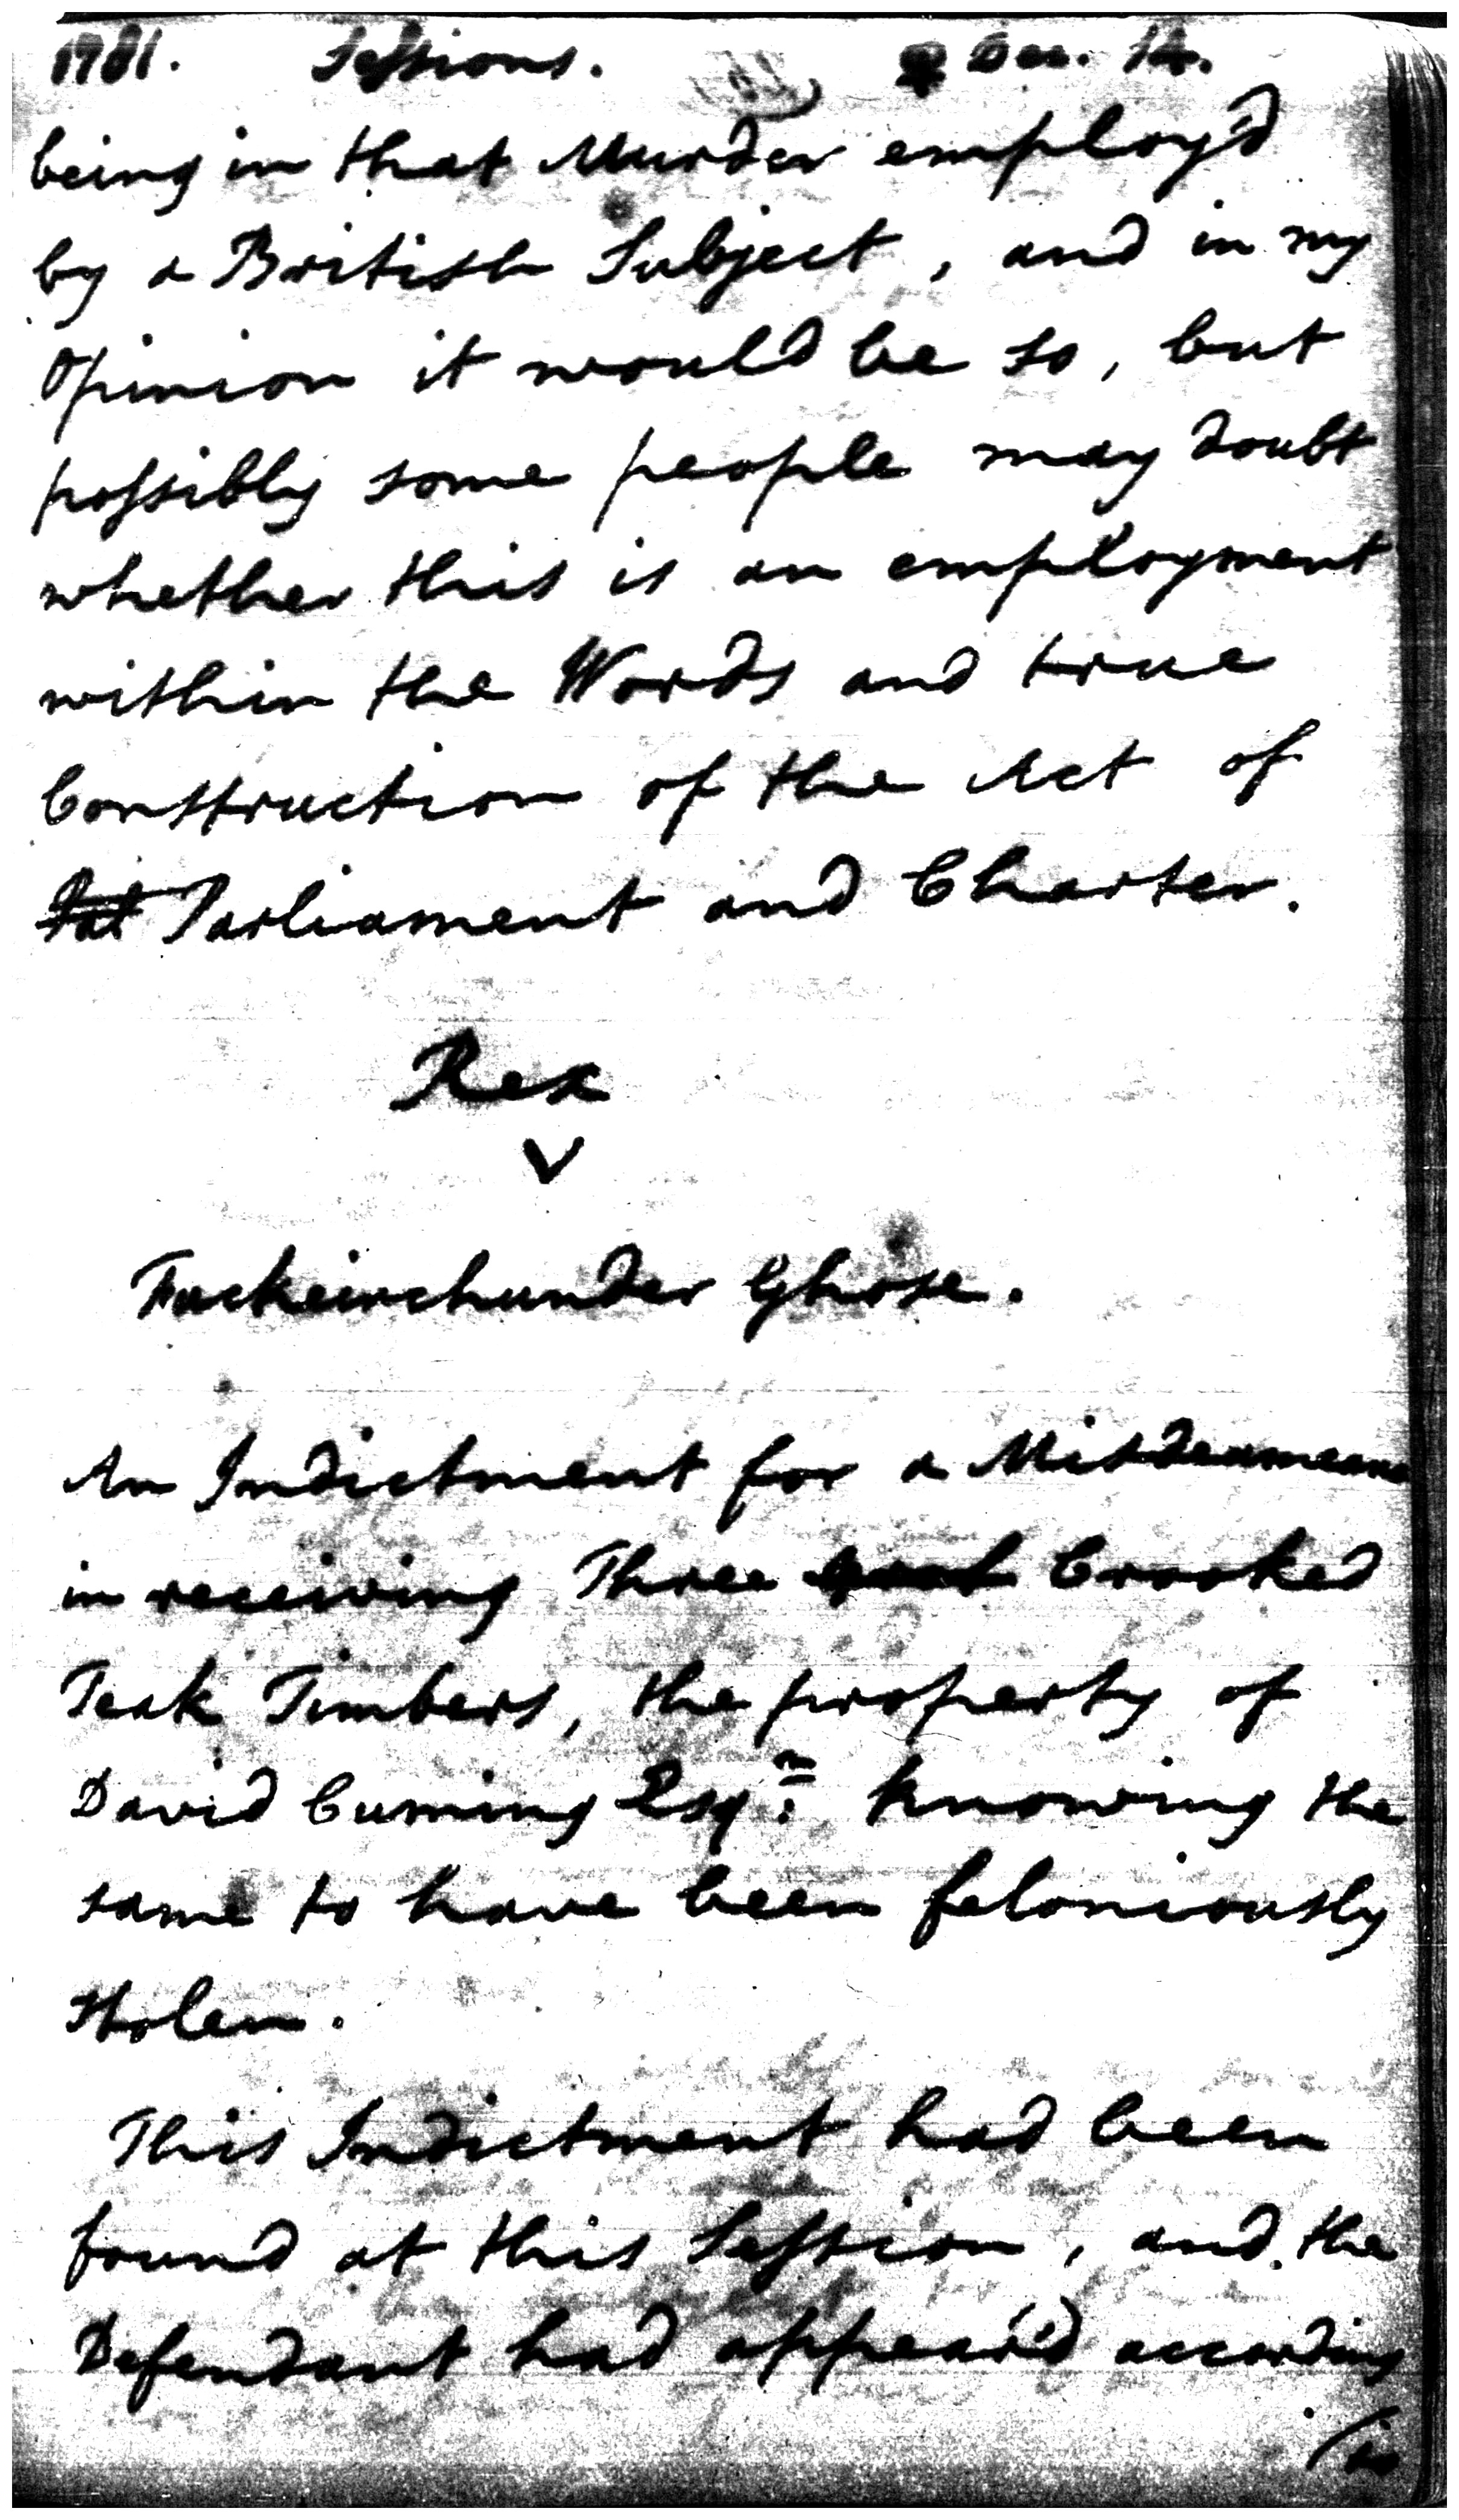 1781. Sessions. Dec. 14.
being in that Murder employ'd
by a British Subject, and in my
Opinion it would be so, but
possibly some people may doubt
whether this is an employment
within the Words and true
Construction of the Act of
Parliament and Charter.
Rex
v
Fackeirchunder Ghose.
An Indictment for a Misdemeano
in receiving Three Crooked
Teak Timbers, the property of
David Cuming Esqr. knowing the
same to have been feloniously
stolen.
This Indictment had been
found at this Session, and the
Defendant had appear'd according